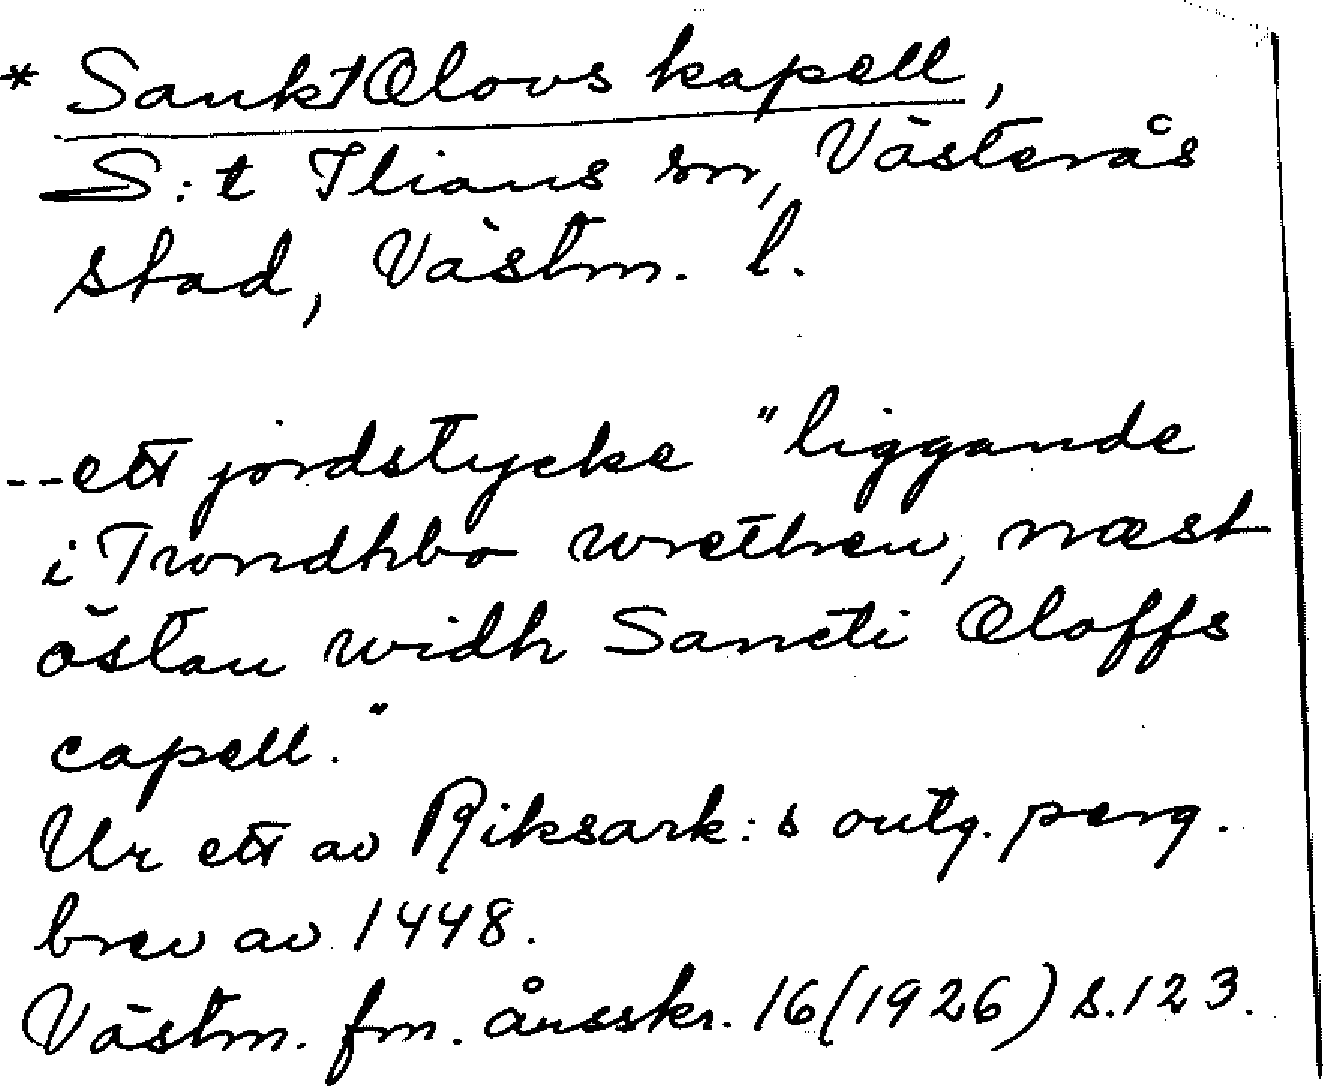 * Sankt Olovs kapell,
S:t Ilians sn, Västerås
stad, Västm. l.
--ett jordstycke "liggande
i Trondhbo wrethen, næst
östan widh Sancti Oloffs
capell."
Ur ett av Riksark:s outg. perg.
brev av 1448.
Västm. fm. årsskr. 16(1926) s.123.